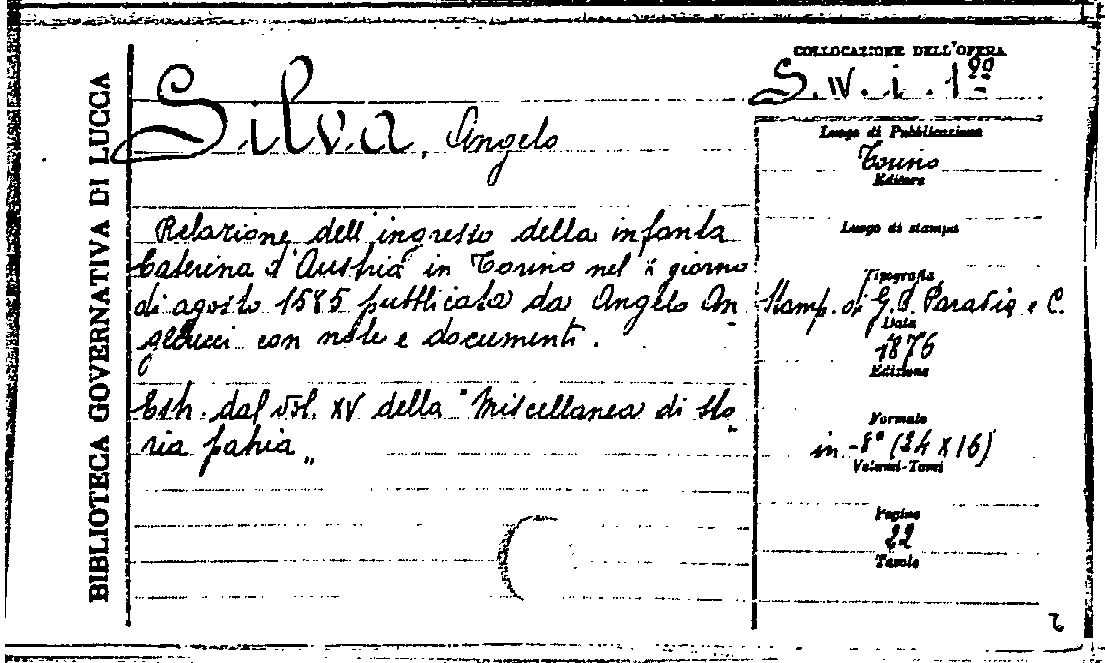 BIBLIOTECA GOVERNATIVA DI LUCCA
Silva, Angelo
Relazione dell'ingresso della infanta
Caterina d'Austria in Torino nel X giorno
di agosto 1585 pubblicata da Angelo An
gelucci con note e documenti.
Estr. dal vol. XV della "Miscellanea di Sto
ria patria"
COLLOCAZIONE DELL'OPERA
S. IV. i. 1
Luogo di Pubblicazione
Torino
Editore
Luogo di stampa
Tipografia
Stamp. di G.B. Paravia e C.
Data
1876
Edizione
Formato
in-8° (24 x 16)
Volumi-Tomi
Pagine
22
Tavole